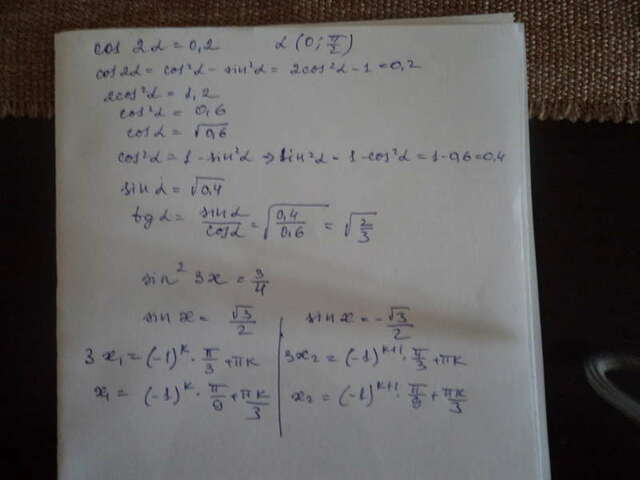 cos 2α = 0,2 α (0; π/2)
cos2α = cos²α - sin²α = 2cos²α - 1 = 0,2
2cos²α = 1,2
cos²α = 0,6
cosα = √0,6
cos²α = 1 - sin²α ⇒ sin²α = 1 - cos²α = 1 - 0,6 = 0,4
sin α = √0,4
tg α = sinα/cosα = √(0,4/0,6) = √(2/3)
sin² 3x = 3/4
sin x = √3/2 sin x = -√3/2
3x₁ = (-1)ᵏ · π/3 + πk 3x₂ = (-1)ᵏ⁺¹ · π/3 + πk
x₁ = (-1)ᵏ · π/9 + πk/3 x₂ = (-1)ᵏ⁺¹ · π/9 + πk/3